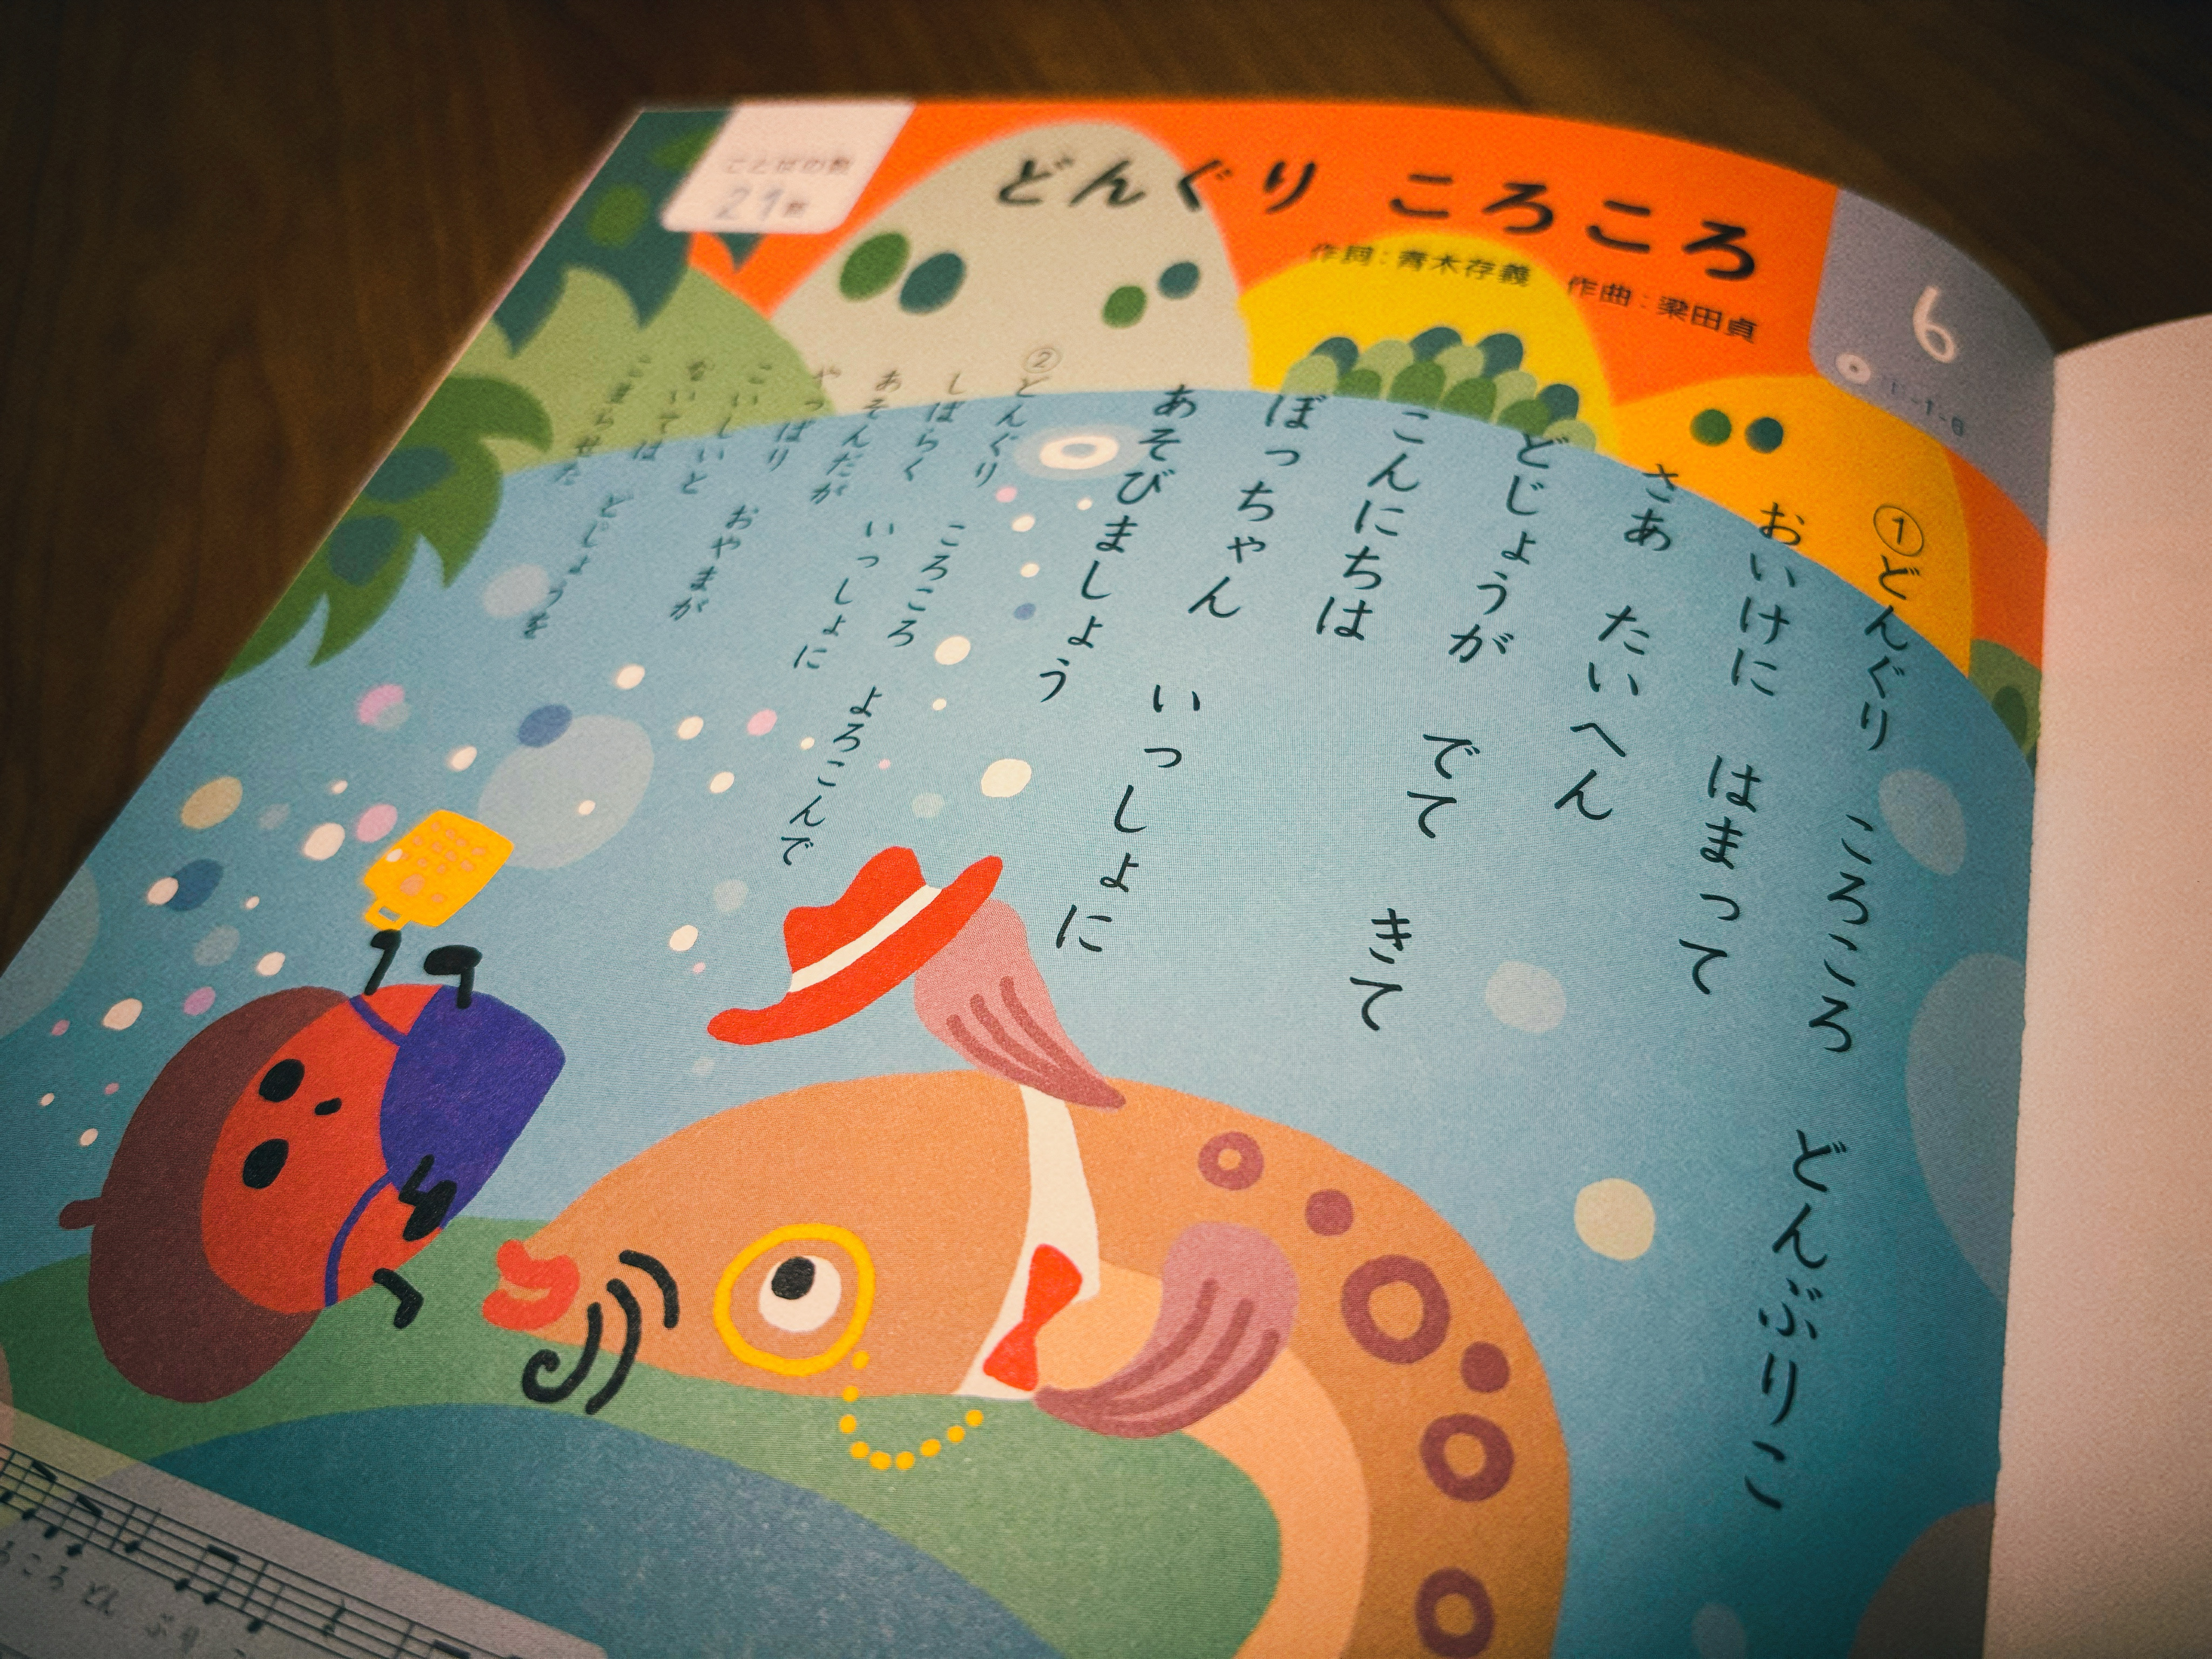 ことばの数
21 数
どんぐり ころころ
作詞：青木存義 作曲：梁田貞
6
①どんぐり ころころ どんぶりこ
おいけに はまって
さあ たいへん
どじょうが でて きて
こんにちは
ぼっちゃん いっしょに
あそびましょう
②どんぐり ころころ よろこんで
しばらく いっしょに
あそんだが
やっぱり おやまが
こいしいと
ないては どじょうを
こまらせた
ころ どん ぶり